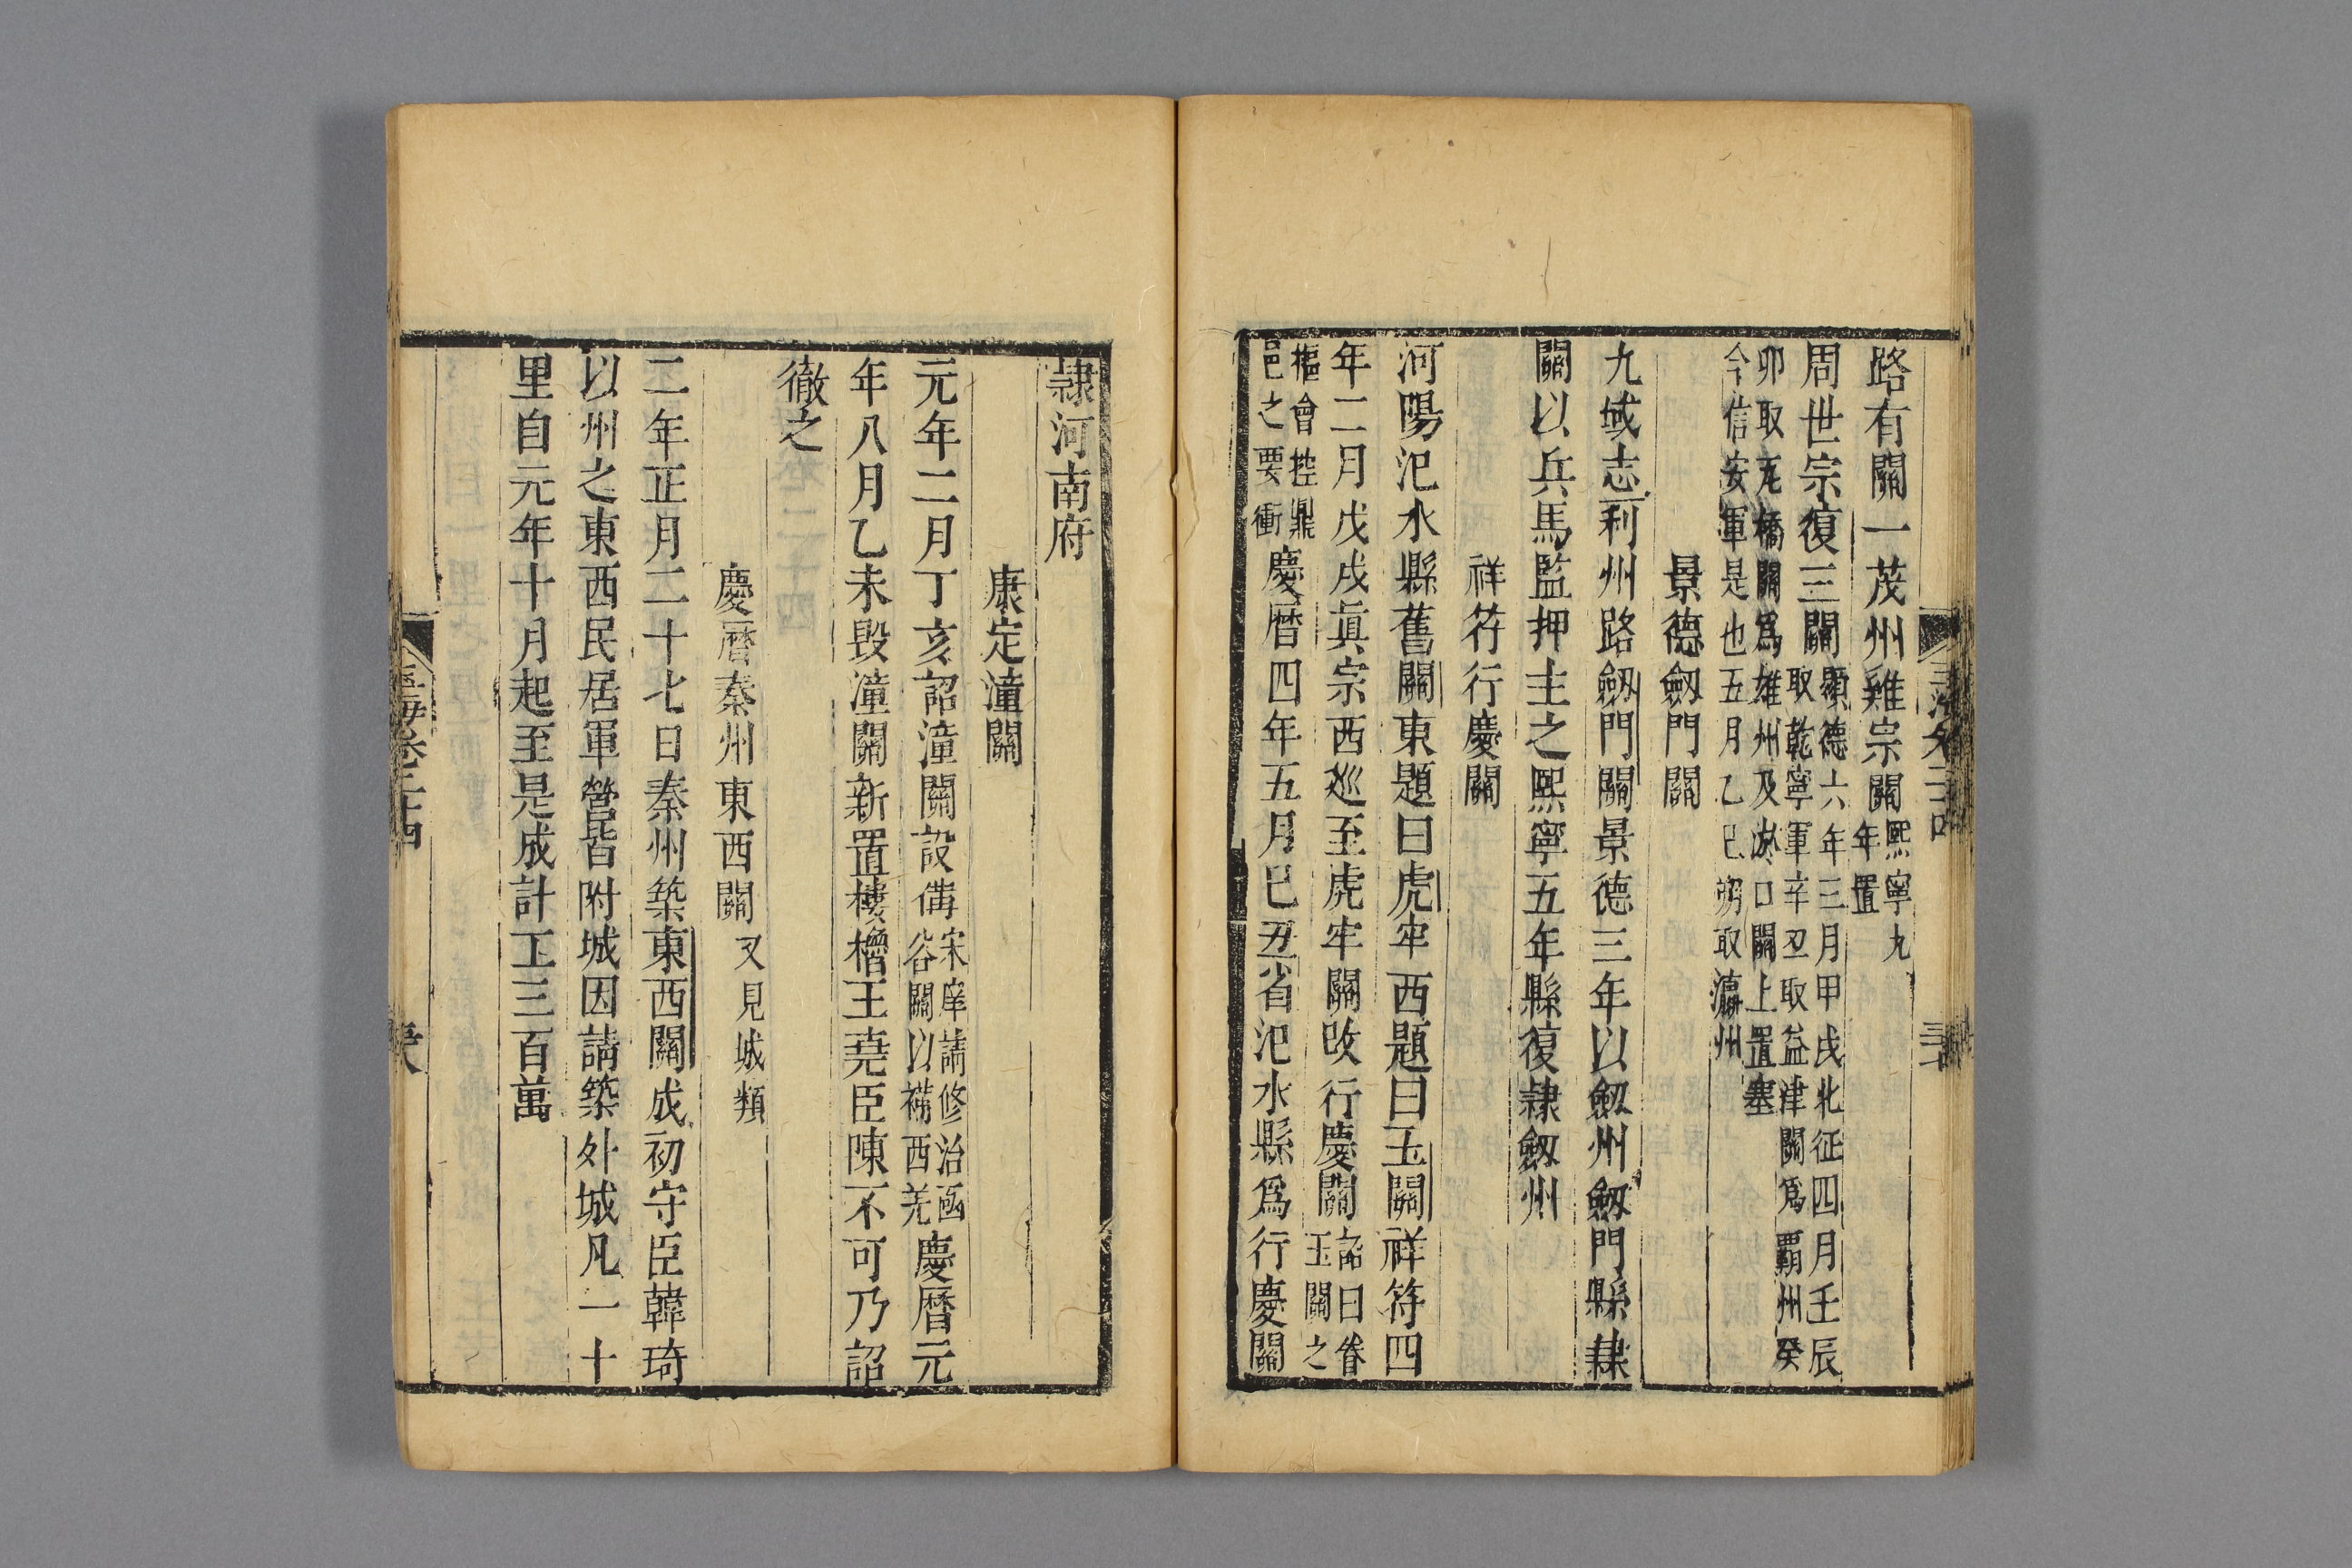 路有關一茂州雞宗關熙寧九年置
周世宗復三關顯德六年三月甲戌北征四月壬辰取乾寧軍辛丑取益津關爲霸州癸
卯取瓦橋關爲雄州及淤口關上置塞今信安軍是也五月乙巳朔取瀛州
景德劒門關
九域志利州路劒門關景德三年以劒州劒門縣隷
關以兵馬監押主之熙寧五年縣復隷劒州
祥符行慶關
河陽汜水縣舊關東題曰虎牢西題曰玉關祥符四
年二月戊戌眞宗西巡至虎牢關改行慶關詔曰眷玉關之
樞會控鼎邑之要衝慶曆四年五月己丑省汜水縣爲行慶關
隷河南府
康定潼關
元年二月丁亥詔潼關設備宋庠請修治函谷關以備西羌慶曆元
年八月乙未毀潼關新置樓櫓王堯臣陳不可乃詔
徹之
慶曆秦州東西關又見城類
二年正月二十七日秦州築東西關成初守臣韓琦
以州之東西民居軍營皆附城因請築外城凡一十
里自元年十月起至是成計工三百萬
玉海卷二十四